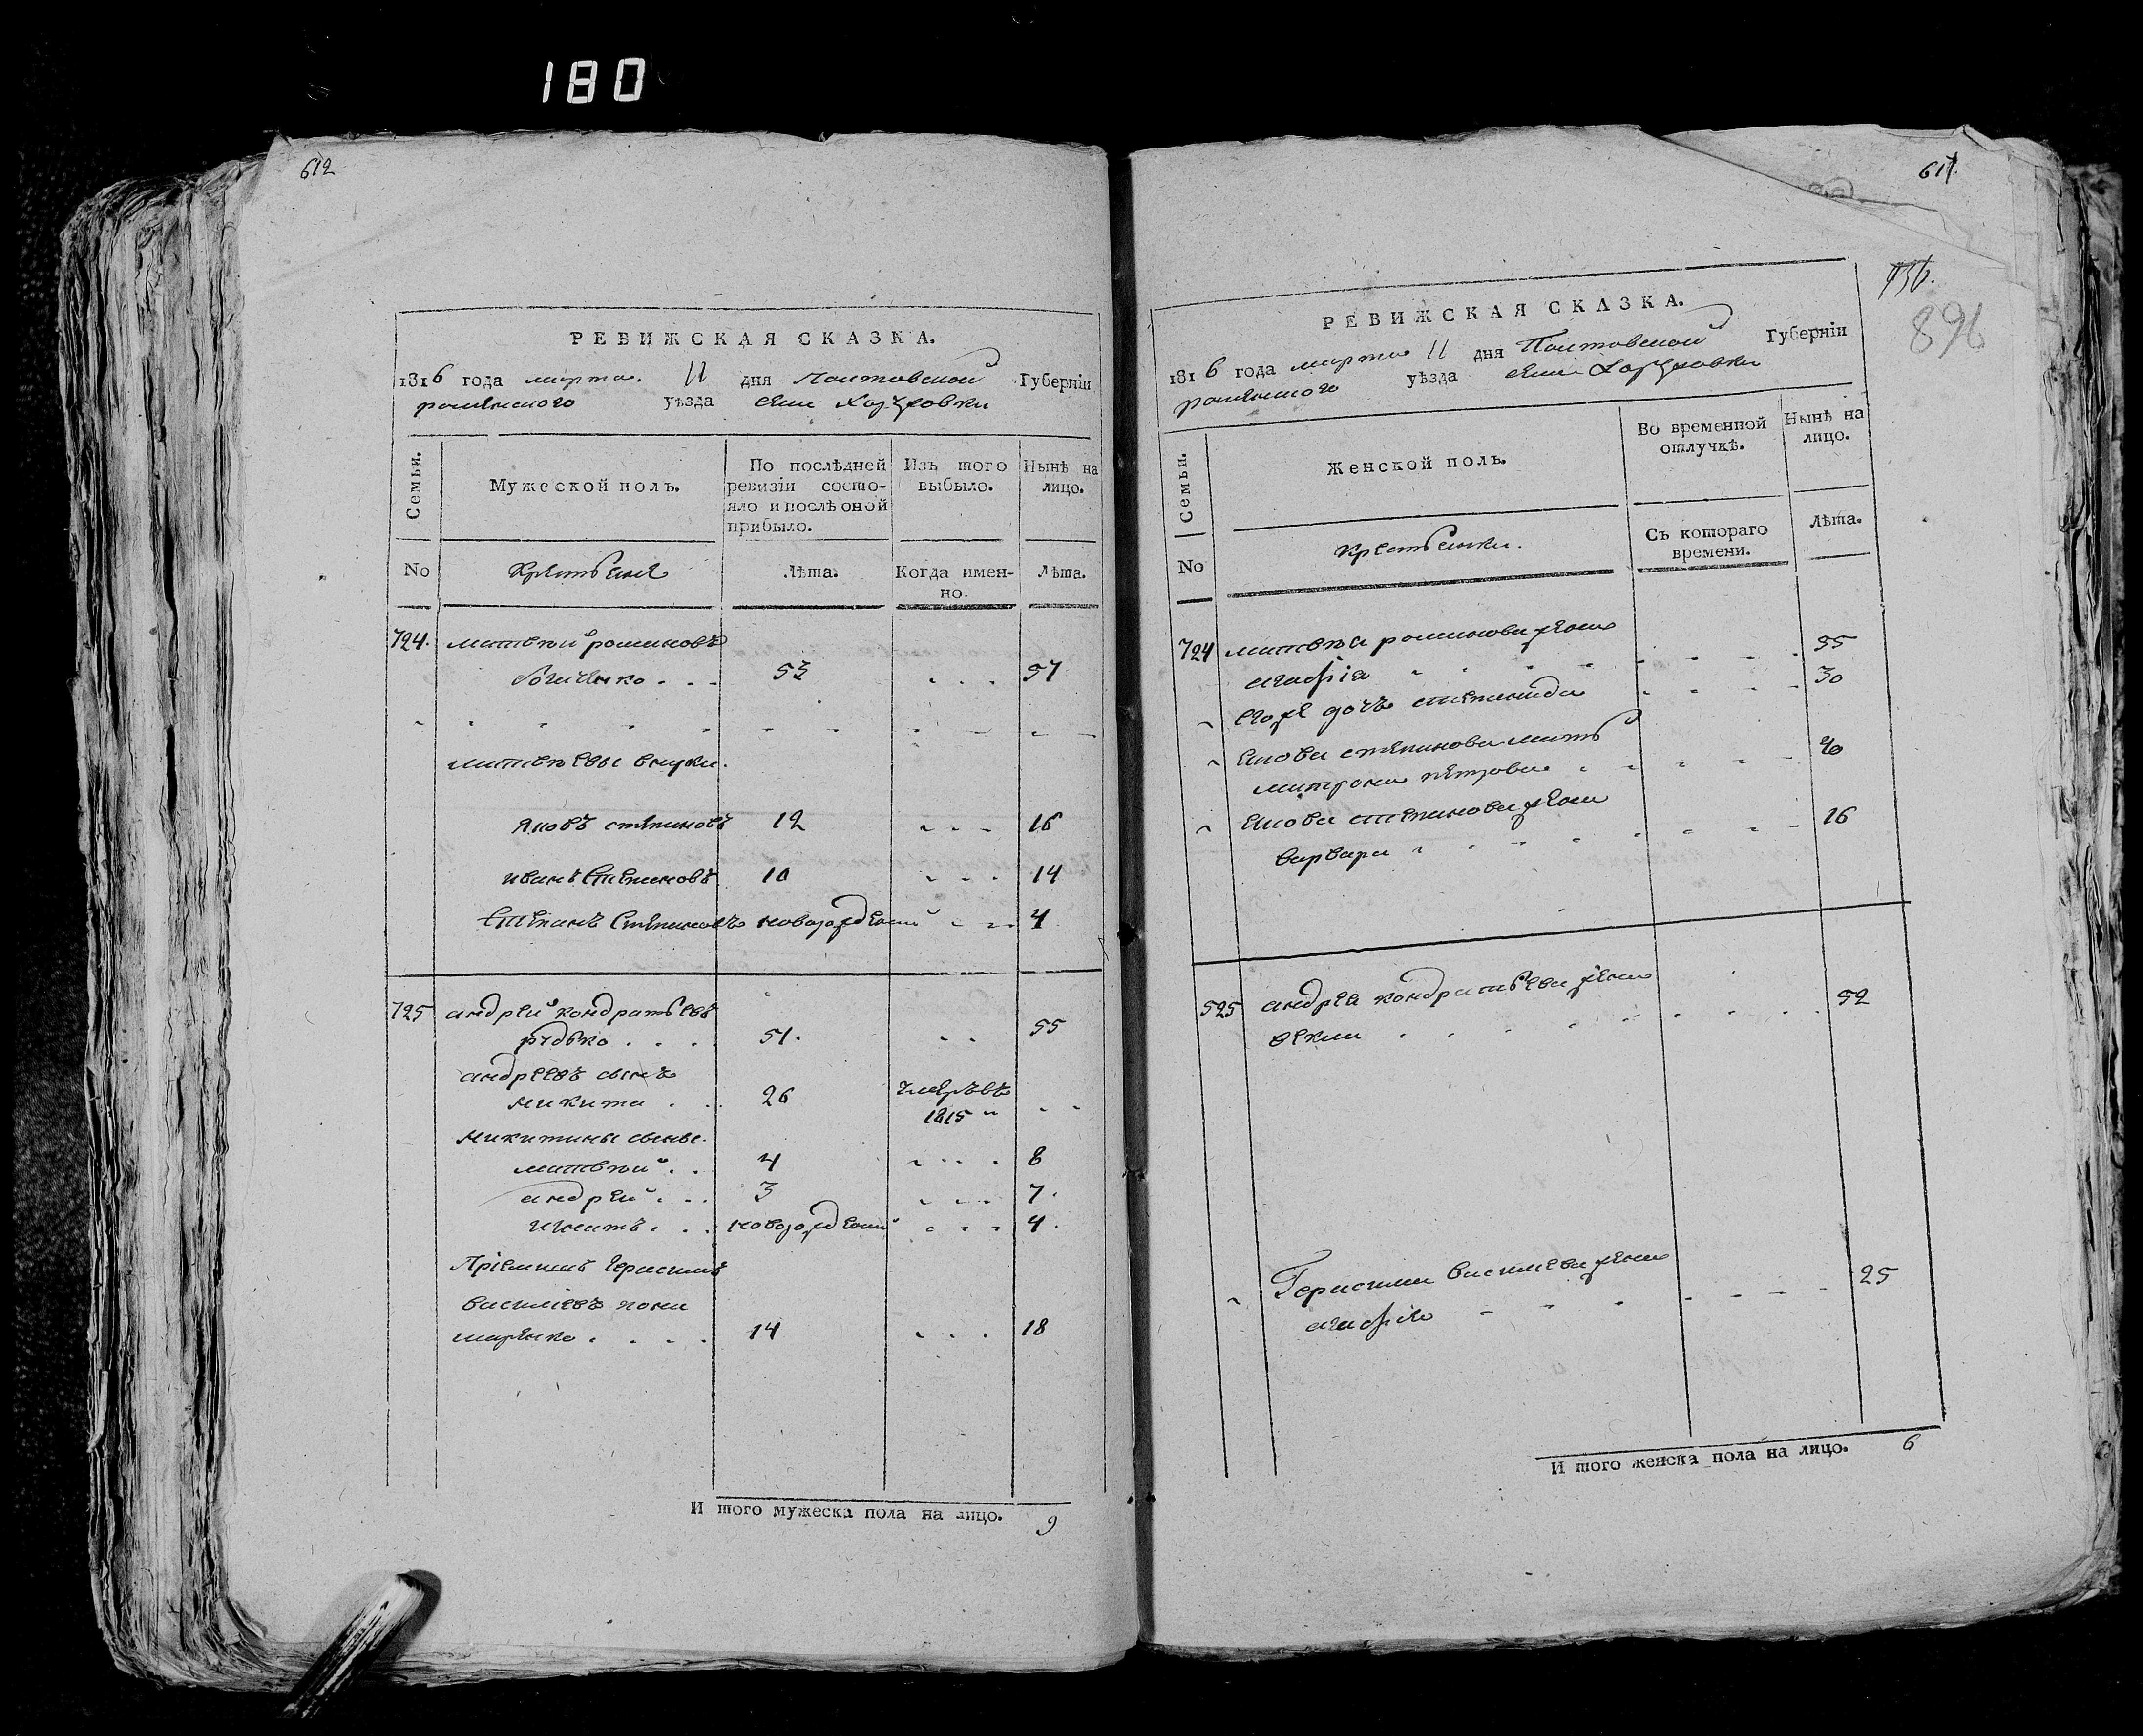 180
612
РЕВИЖСКАЯ СКАЗКА.
1816 года марта 11 дня Полтавской Губерніи
роменского уѣзда села
Семьи.
Мужеской полъ.
По послѣдней ревизіи состо-
яло и послѣ оной
прибыло.
Изъ того
выбыло.
Нынѣ на
лицо.
No
Крестьяне
Лѣта.
Когда имен-
но.
Лѣта.
724. матвѣй романовъ
53 57
матвѣевы внуки.
яковъ степановъ 12 16
иванъ Степановъ 10 14
Степанъ Степановъ новорожденый 4
725 андрей кондратьевъ
рудько 51. 55
андреевъ сынъ
микита 26 умеръ въ
1815
микитины сыны.
матвѣй 4 8
андрей 3 7.
игнатъ новорожденый 4.
Пріемышъ герасимъ
василіевъ
14 18
И того мужеска пола на лицо. 9
611.
736.
896
РЕВИЖСКАЯ СКАЗКА.
1816 года марта 11 дня Полтавской Губерніи
роменского уѣзда села
Семьи.
Женской полъ.
Во временной
отлучкѣ.
Нынѣ на
лицо.
No
Крестьянки.
Съ котораго
времени.
Лѣта.
724 матвѣя романова жена
агафія 55
его же дочь степанида 30
якова степанова мать
матрона петрова 40
якова степанова жена
варвара 16
525 андрея кондратьева жена
ѳекла 52
Герасима василіева жена
агафія 25
И того женска пола на лицо. 6